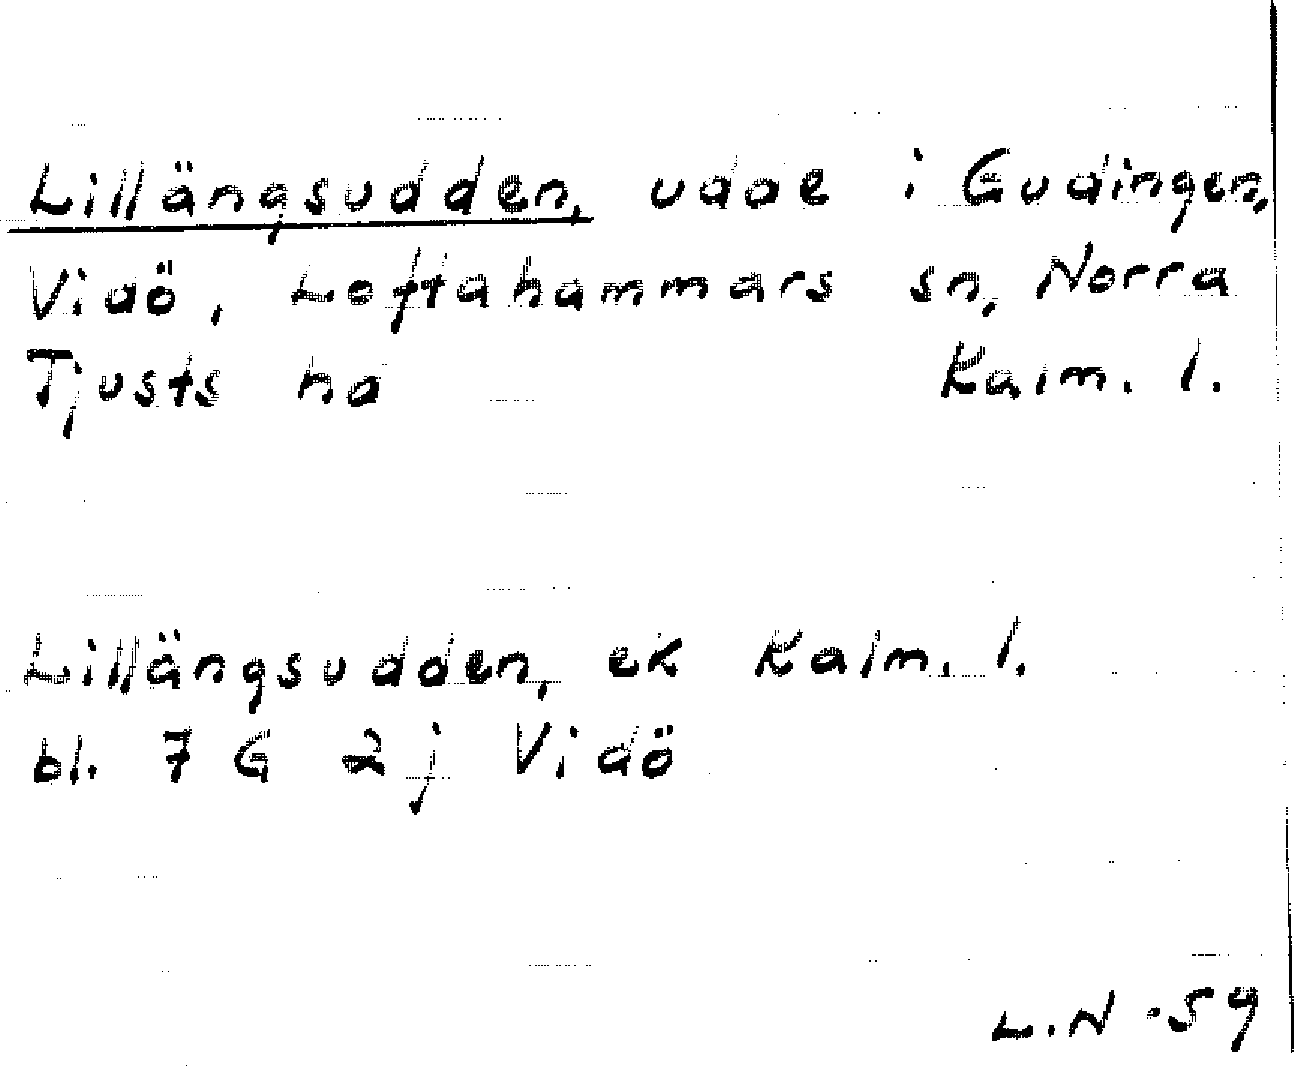 Lillängsudden, udde i Gudingen,
Vidö, Loftahammars sn, Norra
Tjusts hd Kalm. l.
Lillängsudden, ek Kalm. l.
bl. 7 G 2 j Vidö
L.N -59